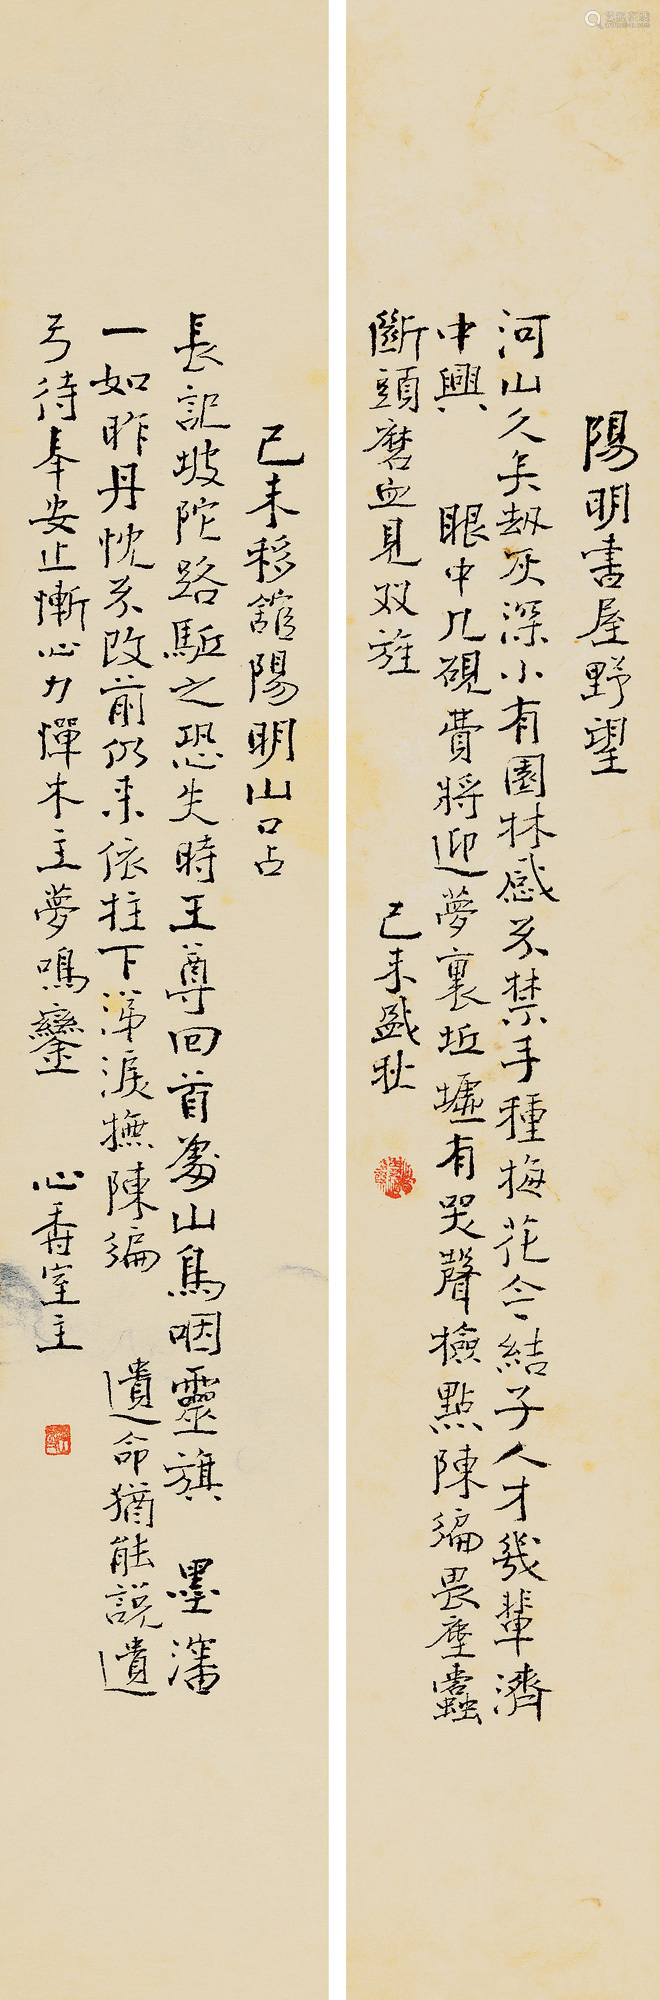 陽明書屋野望
河山久矣劫灰深小有園林感不禁手種梅花今結子人才幾輩濟
中興　眼中几硯費將迎夢裏丘墟有哭聲撿點陳編畏塵蠹
斷頭磨血見双旌
己未盛秋
己未移館陽明山口占
長記坡陀路駈之恐失時王尊回首處山鳥咽靈旗　墨瀋
一如昨丹忱不改前仍来依柱下涕淚撫陳編　遺命猶能説遺
弓待奉安止慚心力憚未主夢鳴鑾　心香室主